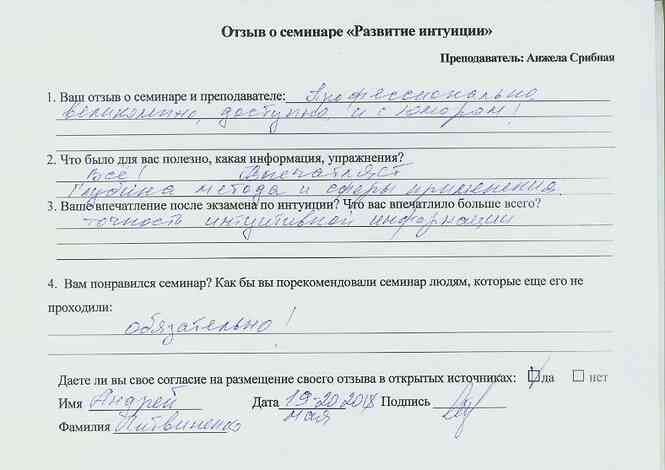 Отзыв о семинаре «Развитие интуиции»
Преподаватель: Анжела Срибная
1. Ваш отзыв о семинаре и преподавателе: Профессионально,
великолепно, доступно и с юмором!
2. Что было для вас полезно, какая информация, упражнения?
Всё! Впечатляет
Глубина метода и сферы применения.
3. Ваше впечатление после экзамена по интуиции? Что вас впечатлило больше всего?
точность интуитивной информации
4. Вам понравился семинар? Как бы вы порекомендовали семинар людям, которые еще его не
проходили:
обязательно!
Даете ли вы свое согласие на размещение своего отзыва в открытых источниках: да нет
Имя Андрей Дата 19-20.2018 Подпись
мая
Фамилия Литвиненко